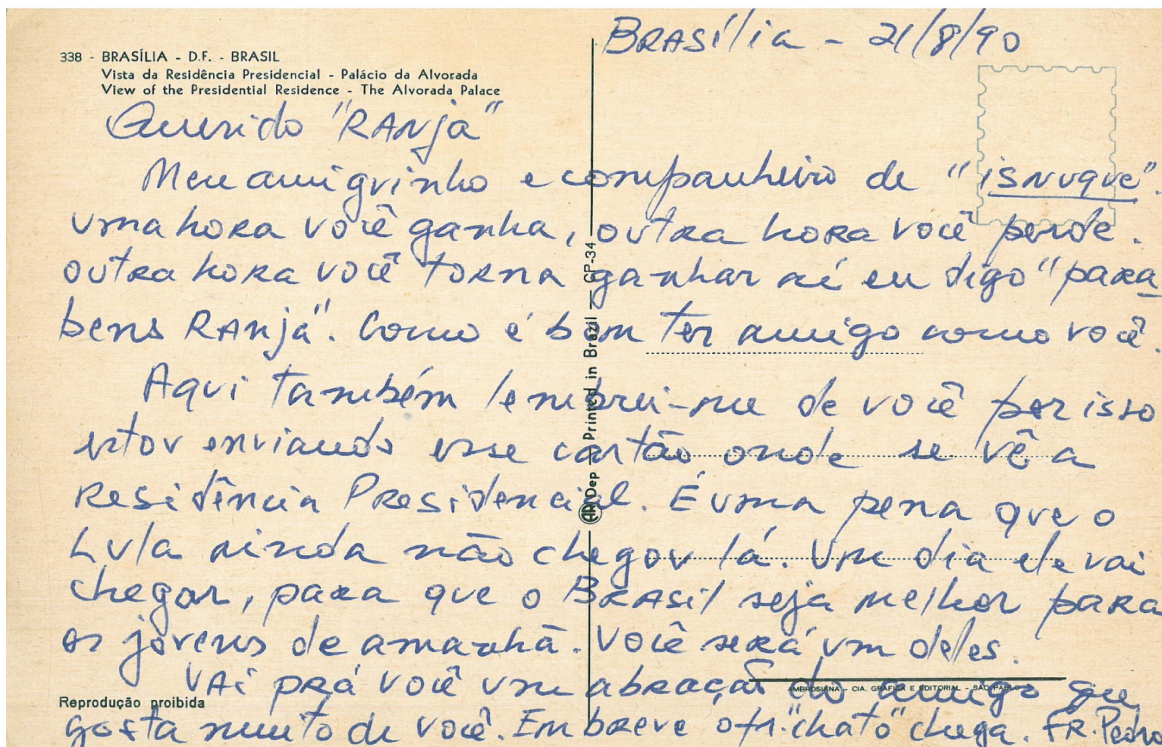 338 - BRASÍLIA - D.F. - BRASIL
Vista da Residência Presidencial - Palácio da Alvorada
View of the Presidential Residence - The Alvorada Palace
BRASília - 21/8/90
Querido "RANJA"
Meu amiguinho e companheiro de "isnuque".
uma hora você ganha, outra hora você perde.
outra hora você torna ganhar aí eu digo "para
bens RANJA". Como é bom ter amigo como você.
Aqui também lembrei-me de você por isso
estou enviando esse cartão onde se vê a
Residência Presidencial. É uma pena que o
Lula ainda não chegou lá. Um dia ele vai
chegar, para que o BRASil seja melhor para
os jovens de amanhã. Você será um deles.
VAi prá você um abração do amigo que
gosta muito de você. Em breve o fr. "chato" chega. FR. Pedro
Dep - Printed in Brazil - CP-34
AMBROSIANA - CIA. GRÁFICA E EDITORIAL - SÃO PAULO
Reprodução proibida